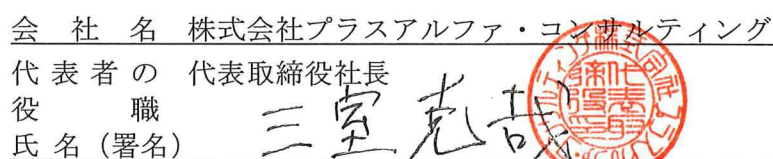 会社名 株式会社プラスアルファ・コンサルティング
代表者の 代表取締役社長
役職
氏名(署名) 三室克哉